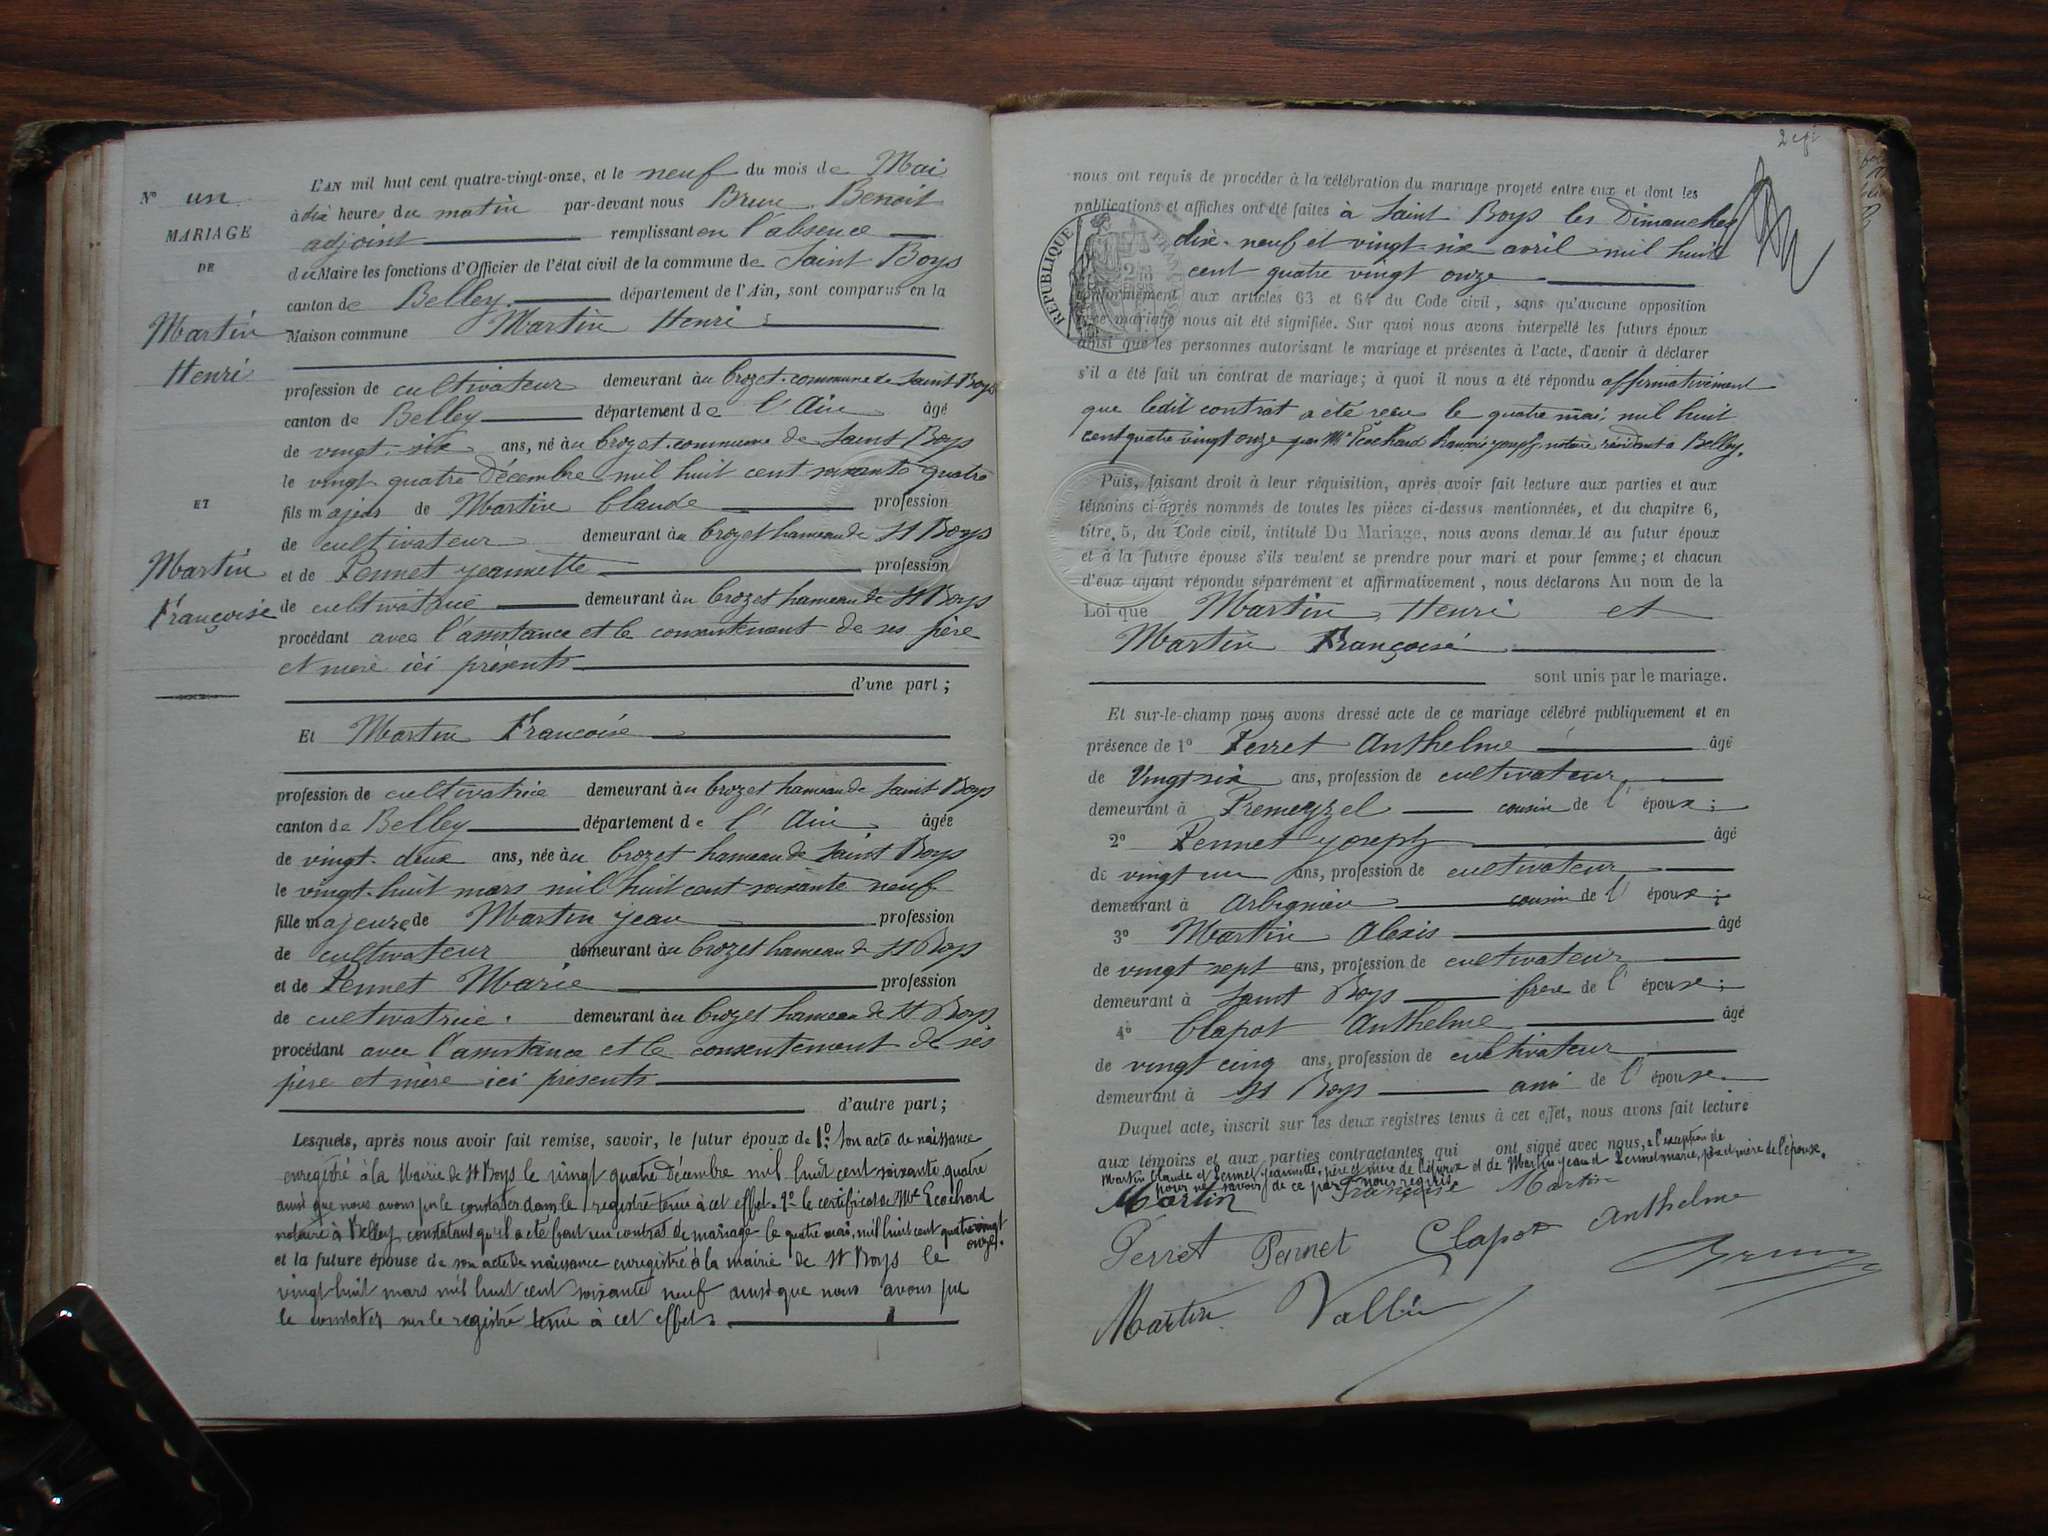 N° un
MARIAGE
DE
Martin
Henri
ET
Martin
Françoise
L'AN mil huit cent quatre-vingt-onze, et le neuf du mois de Mai
à dix heures du matin par-devant nous Brun Benoit
adjoint remplissant en l'absence
du Maire les fonctions d'Officier de l'état civil de la commune de Saint Boys
canton de Belley département de l'Ain, sont comparus en la
Maison commune Martin Henri
profession de cultivateur demeurant àu Crozet commune de Saint Boys
canton de Belley département de l'Ain âgé
de vingt six ans, né àu Crozet commune de Saint Boys
le vingt quatre Décembre mil huit cent soixante quatre
fils majeur de Martin Claude profession
de cultivateur demeurant àu Crozet hameau de St Boys
et de Pennet jeannette profession
de cultivatrice demeurant àu Crozet hameau de St Boys
procédant avec l'assistance et le consentement de ses père
et mère ici présents
d'une part ;
Et Martin Françoise
profession de cultivatrice demeurant àu Crozet hameau de Saint Boys
canton de Belley département de l'Ain âgée
de vingt deux ans, née àu Crozet hameau de Saint Boys
le vingt huit mars mil huit cent soixante neuf
fille majeure de Martin jean profession
de cultivateur demeurant àu Crozet hameau de St Boys
et de Pennet Marie profession
de cultivatrice. demeurant àu Crozet hameau de St Boys
procédant avec l'assistance et le consentement de ses
père et mère ici présents
d'autre part ;
Lesquels, après nous avoir fait remise, savoir, le futur époux de 1°: son acte de naissance
enregistré à la Mairie de St Boys le vingt quatre Décembre mil huit cent soixante quatre
ainsi que nous avons pu le constater dans le registre tenu à cet effet. 2° le certificat de Me Ecochard
notaire à Belley constatant qu'il a été fait un contrat de mariage le quatre mai, mil huit cent quatre vingt
onze.
et la future épouse de son acte de naissance enregistré à la mairie de St Boys le
vingt huit mars mil huit cent soixante neuf ainsi que nous avons pu
le constater sur le registre tenu à cet effet.
nous ont requis de procéder à la célébration du mariage projeté entre eux et dont les
publications et affiches ont été faites à Saint Boys les Dimanches
dix-neuf et vingt-six avril mil huit
cent quatre vingt onze
RÉPUBLIQUE FRANÇAISE
conformément aux articles 63 et 64 du Code civil, sans qu'aucune opposition
à ce mariage nous ait été signifiée. Sur quoi nous avons interpellé les futurs époux
ainsi que les personnes autorisant le mariage et présentes à l'acte, d'avoir à déclarer
s'il a été fait un contrat de mariage; à quoi il nous a été répondu affirmativement
que ledit contrat a été reçu le quatre mai mil huit
cent quatre vingt onze par Me Ecochard françois joseph, notaire résidant à Belley.
Puis, faisant droit à leur réquisition, après avoir fait lecture aux parties et aux
témoins ci-après nommés de toutes les pièces ci-dessus mentionnées, et du chapitre 6,
titre 5, du Code civil, intitulé Du Mariage, nous avons demandé au futur époux
et à la future épouse s'ils veulent se prendre pour mari et pour femme; et chacun
d'eux ayant répondu séparément et affirmativement, nous déclarons Au nom de la
Loi que Martin Henri et
Martin Françoise
sont unis par le mariage.
Et sur-le-champ nous avons dressé acte de ce mariage célébré publiquement et en
présence de 1° Perret Anthelme âgé
de Vingt six ans, profession de cultivateur
demeurant à Premeyzel cousin de l'époux ;
2° Pennet joseph âgé
de vingt un ans, profession de cultivateur
demeurant à Arbignieu cousin de l'époux ;
3° Martin Alexis âgé
de vingt sept ans, profession de cultivateur
demeurant à Saint Boys frère de l'épouse ;
4° Clapot Anthelme âgé
de vingt cinq ans, profession de cultivateur
demeurant à St Boys ami de l'épouse.
Duquel acte, inscrit sur les deux registres tenus à cet effet, nous avons fait lecture
aux témoins et aux parties contractantes qui ont signé avec nous, à l'exception de
Martin Claude et Pennet jeannette, père et mère de l'époux et de Martin jean et Pennet marie, père et mère de l'épouse,
pour ne savoir de ce par nous requis
Martin Françoise Martin
Perret Pennet Clapot Anthelme
Brun
Martin Vallin